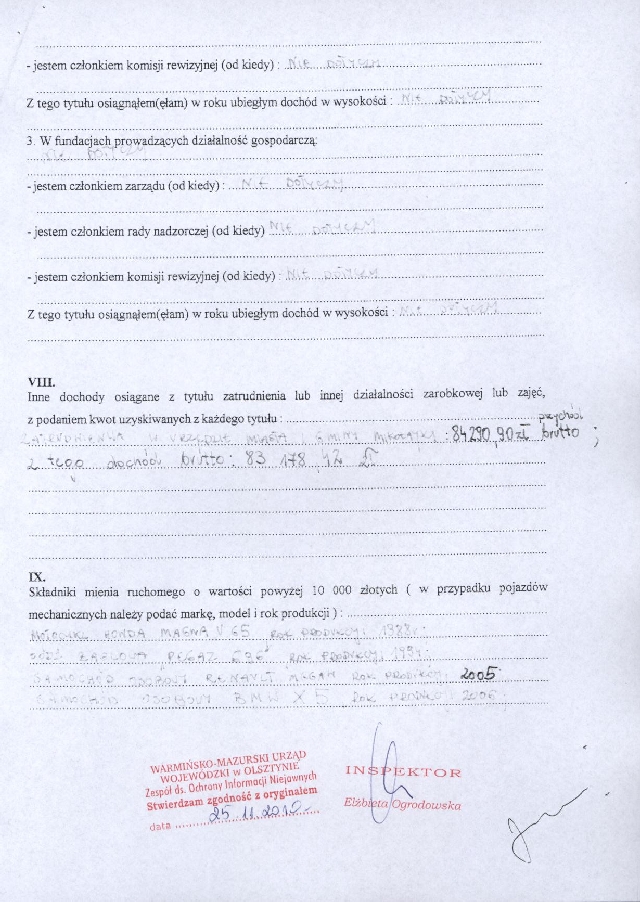 - jestem członkiem komisji rewizyjnej (od kiedy) : NIE DOTYCZY
Z tego tytułu osiągnąłem(ęłam) w roku ubiegłym dochód w wysokości : NIE DOTYCZY
3. W fundacjach prowadzących działalność gospodarczą:
NIE DOTYCZY
- jestem członkiem zarządu (od kiedy) : NIE DOTYCZY
- jestem członkiem rady nadzorczej (od kiedy) NIE DOTYCZY
- jestem członkiem komisji rewizyjnej (od kiedy) : NIE DOTYCZY
Z tego tytułu osiągnąłem(ęłam) w roku ubiegłym dochód w wysokości : NIE DOTYCZY
VIII.
Inne dochody osiągane z tytułu zatrudnienia lub innej działalności zarobkowej lub zajęć,
z podaniem kwot uzyskiwanych z każdego tytułu : przychód
W URZĘDZIE MIASTA GMINY MIKOŁAJKI : 84290,90 zł brutto ;
z tego dochód brutto : 83 178 42 zł
IX.
Składniki mienia ruchomego o wartości powyżej 10 000 złotych ( w przypadku pojazdów
mechanicznych należy podać markę, model i rok produkcji ) :
MOTOCYKL HONDA MAGNA V 65 ROK PRODUKCJI 1988r.
ŁÓDŹ ŻAGLOWA PEGAZ ROK PRODUKCJI
SAMOCHÓD OSOBOWY RENAULT MEGAN ROK PRODUKCJI 2005
SAMOCHÓD OSOBOWY BMW X5 ROK PRODUKCJI 2006
WARMIŃSKO-MAZURSKI URZĄD
WOJEWÓDZKI w OLSZTYNIE
Zespół ds. Ochrony Informacji Niejawnych
Stwierdzam zgodność z oryginałem
data 25.11.2010
INSPEKTOR
Elżbieta Ogrodowska